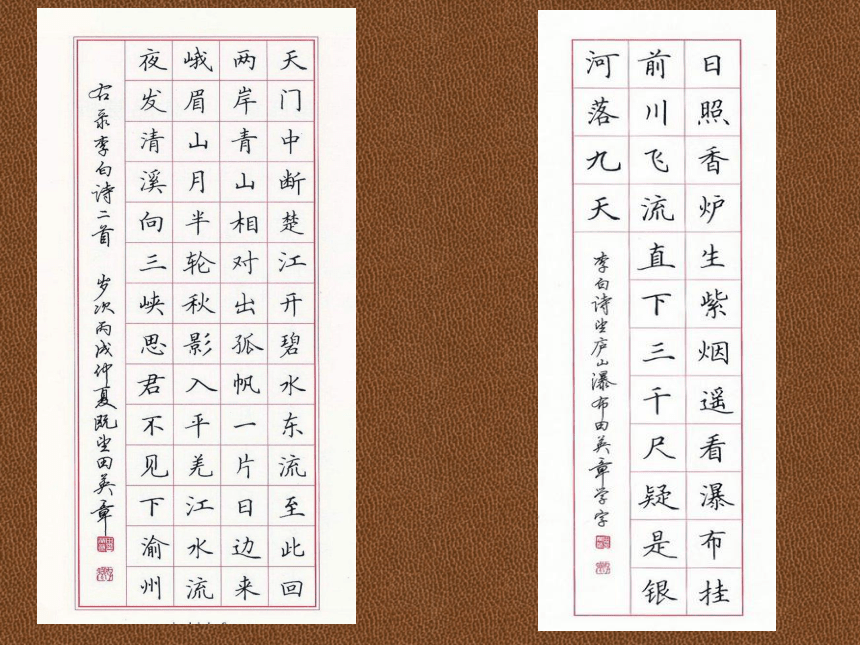 天门中断楚江开碧水东流至此回
两岸青山相对出孤帆一片日边来
峨眉山月半轮秋影入平羌江水流
夜发清溪向三峡思君不见下渝州
右录李白诗二首 岁次丙戌仲夏既望田英章
日照香炉生紫烟遥看瀑布挂
前川飞流直下三千尺疑是银
河落九天
李白诗望庐山瀑布田英章学字